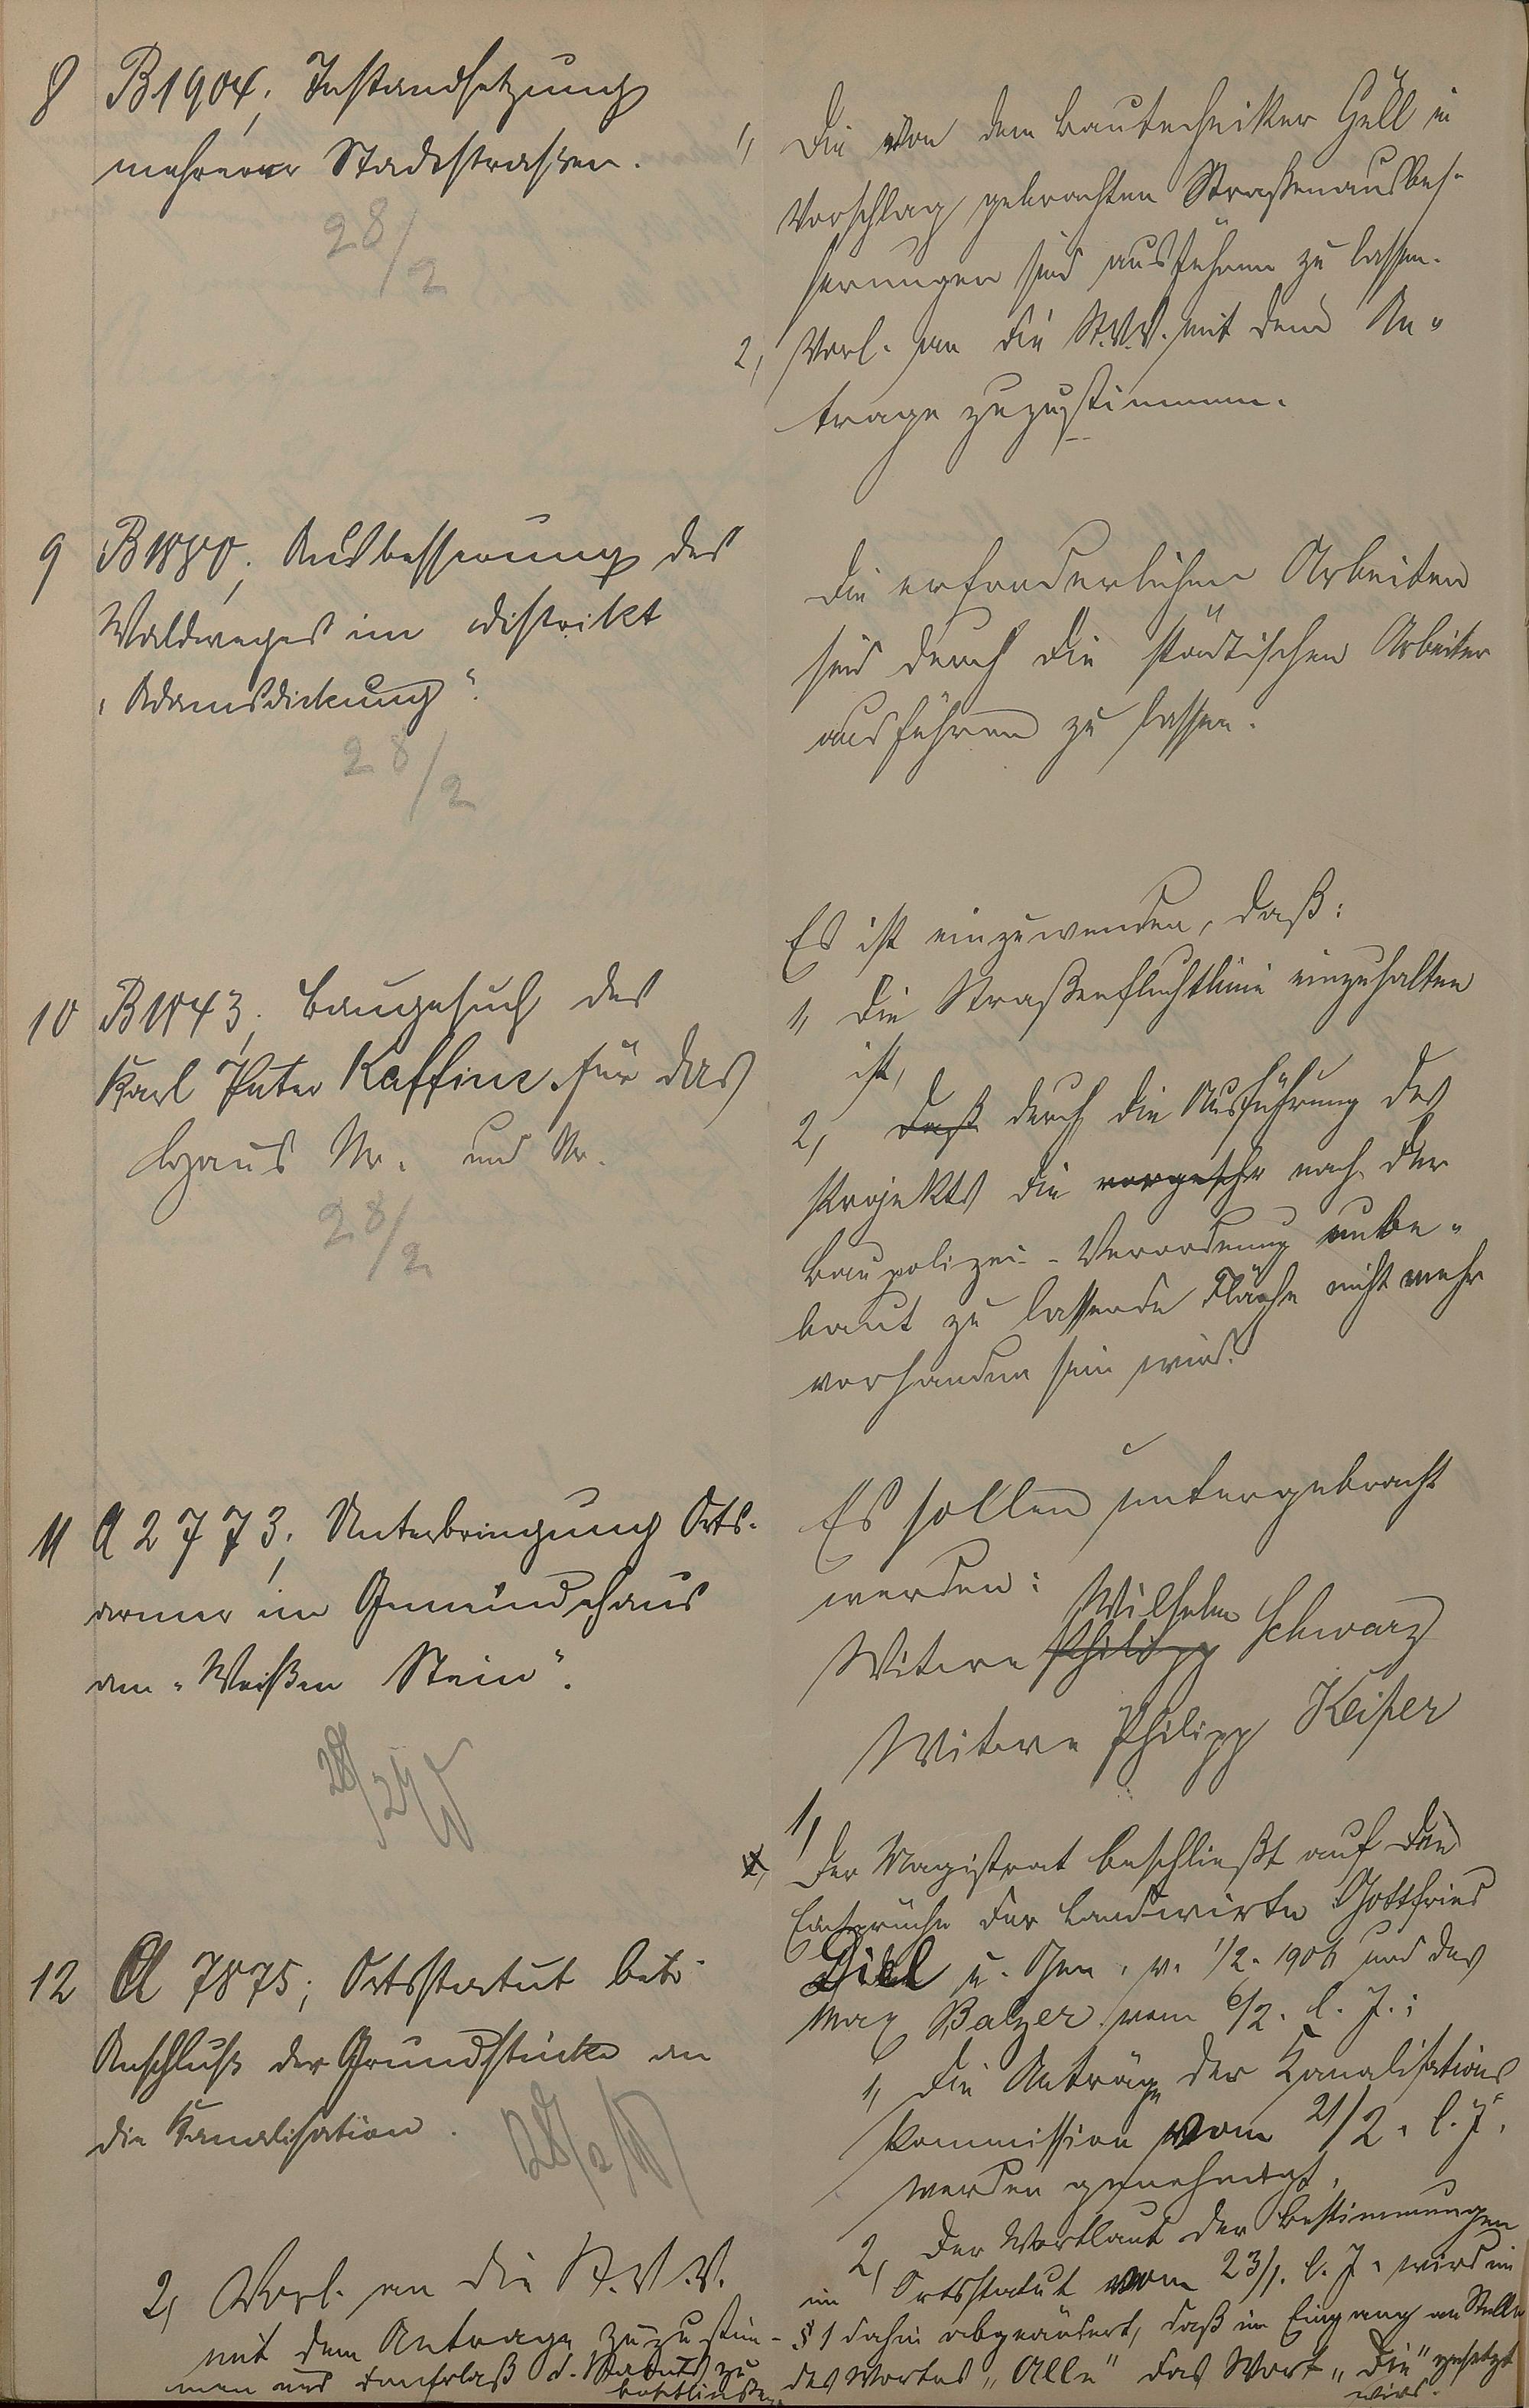 8 B1904; Instandsetzung
mehrerer Stadtstraßen.
28/2
1, Die von dem Bautechniker Güll in
Vorschlag gebrachten Straßenausbes-
serungen sind ausführen zu lassen.
2, Vorl. an die St.V.V. mit dem An-
trage zuzustimmen.
9 Ausbesserung des
Waldweges im Distrikt
"Adamsdickung".
28/2
Die erforderlichen Arbeiten
sind durch die städtischen Arbeiter
ausführen zu lassen.
10 Baugesuch des
Karl Peter Kaffine für das
Haus Nr. und Nr.
28/2
Es ist einzuwenden, daß:
1, die Straßenfluchtlinie einzuhalten
ist,
2, daß durch die Ausführung des
Projekts die vorgesehe nach der
Baupolizei-Verordnung unbe-
baut zu lassende Fläche nicht mehr
vorhanden sein wird.
11 A 2773; Unterbringung Orts-
armer im Gemeindehaus
am "Weißen Stein".
28/2
Es sollen untergebracht
werden:
Witwe Philipp Wilhelm Schwarz
Witwe Philipp Keiper
12 A 7875; Ortsstatut betr.
Anschluß der Grundstücke an
die Kanalisation.
28/2
1, Der Magistrat beschließt auf die
Einsprüche der Landwirte Gottfried
Diel u. Gen. v. 1/2. 1906 und des
Max Balzer vom 6/2. l. J.:
1, Die Anträge der Kanalisations
Kommission vom 21/2. l. J.
werden genehmigt.
2, Der Wortlaut der Bestimmungen
im Ortsstatut vom 23/1. l. J. wird im
§ 1 dahin abgeändert, daß im Eingang an Stelle
des Wortes "Alle" das Wort "Die" gesetzt
wird.
2, Vorl. an die St.V.V.
mit dem Antrage zuzustim-
men und d. Statuts zu
beschließen.